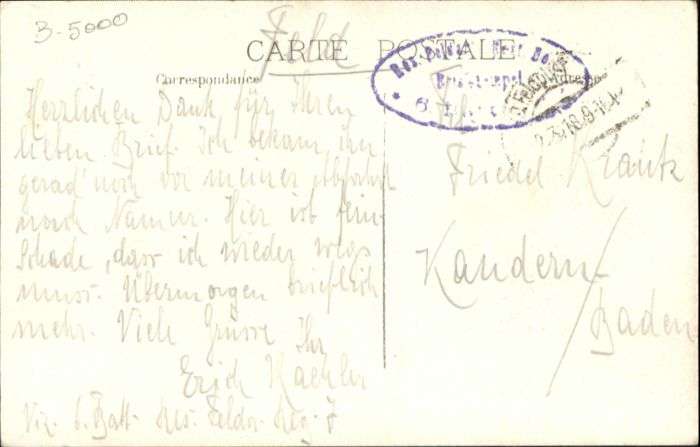 3-5000
Feld
CARTE POSTALE
Correspondance
Herzlichen Dank für Ihren
lieben Brief. Ich bekam ihn
gerad' noch vor meiner Abfahrt
nach Namur. Hier ist fein.
Schade, dass ich wieder weg
muss. Übermorgen brieflich
mehr. Viele Grüsse
Ihr
Erich Kaehler
Viz. 6. Batt. Res. Feldar. Reg. 7
Friedel Krautz
Kandern
Baden